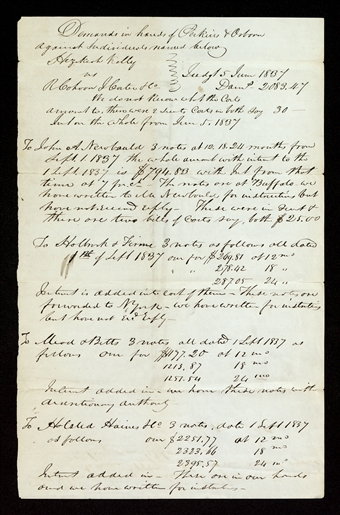 Demands in hands of Perkins & Osborn
against Individuals named below
Hezekiah Kelly
vs Judgt 5 June 1837
R Cohoon J Cates &c Damgs 2083.47
We do not know what the Costs
amount to, there were 2 Suits, Costs in both say 30—
Int on the whole from June 5. 1837
To John A. Newbould 3 notes at 10.18.24 months from
Sept 1 1837 the whole amount with interest to the
1 Sept 1837 is $794.80 with Int from that
time at 7 pr ct — The notes are at Buffalo, we
have written to Mr Newbould for instructions but
have not received reply — These were in Suit &
there are two bills of Costs say, both $25.00
To Holbrook & Firme 3 notes as follows all dated
1st of Sept 1837 one for $269.81 at 12 mo
" 278.42 18 "
287.05 24 "
Interest is added into each of them — These notes are
forwarded to N York — we have written for instructions
but have not recd reply —
To Mead & Betts 3 notes all dated 1 Sept 1837 as
follows one for $1177.20 at 12 mo
1213.87 18 mo
1251.54 24 mo
Interest added in — we have these notes with
discretionary authority
To Haines &c 3 notes, date 1 Sept 1837
as follows one $2251.77 at 12 mo
2323.66 18 mo
2395.57 24 mo
Interest added in — These are in our hands
and we have written for instructions —